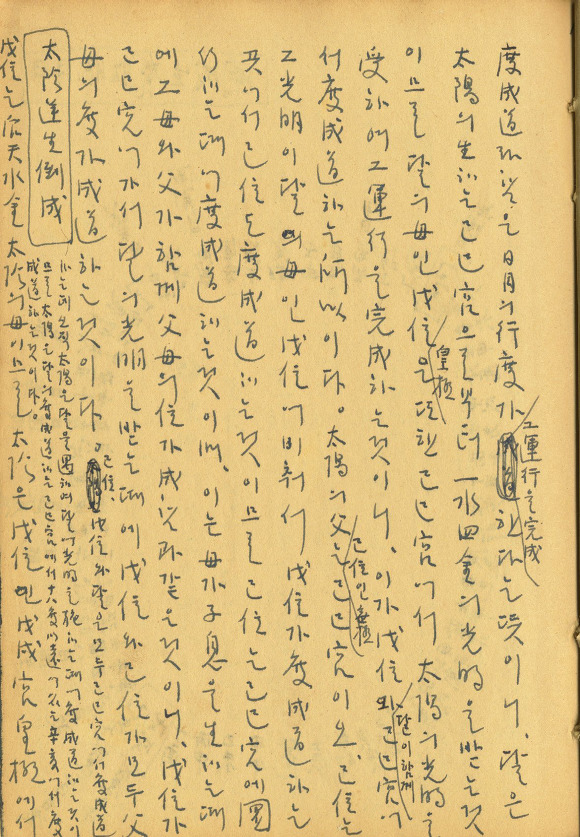 度成道라 함은 日月의 行度가 그 運行을 完成한다는 뜻이니, 달은
太陽의 生하는 己巳宮으로부터 一水四金의 光明을 받는 것
이므로 달의 母인 戊位 皇極은 또한 己巳宮에서 太陽의 光明을
受하여 그 運行을 完成하는 것이니, 이가 戊位와 달이 함께 己巳宮에
서 度成道하는 所以이다。太陽의 父는 己位인 无極 己巳宮이오, 己位는
그 光明이 달의 母인 戊位에 비춰서 戊位가 度成道하는
것에서 己位도 度成道하는 것이므로 己位는 己巳宮에
行하는 때에 度成道하는 것이며, 이는 母가 子息을 生하는 때
에 그 母와 父가 함께 父母의 位가 成함과 같은 것이니, 戊位가
己巳宮에 가서 달의 光明을 받는 때에 戊位와 己位가 모두 父
母의 度가 成道하는 것이다。己位、戊位와 달은 모두 己巳宮에서 度成道
하는 때 오직 太陽은 달을 遇하여 달에 光明을 施하는 때에 度成道하는 것이
므로 太陽은 달의 度成道하는 己巳宮에서 十八度 以遠에 있는 辛亥에서 度
成道하는 것이다。
太陰逆生倒成
戊位는 后天水金太陰의 母이므로 太陰은 戊位인 戊戌宮 皇極에서